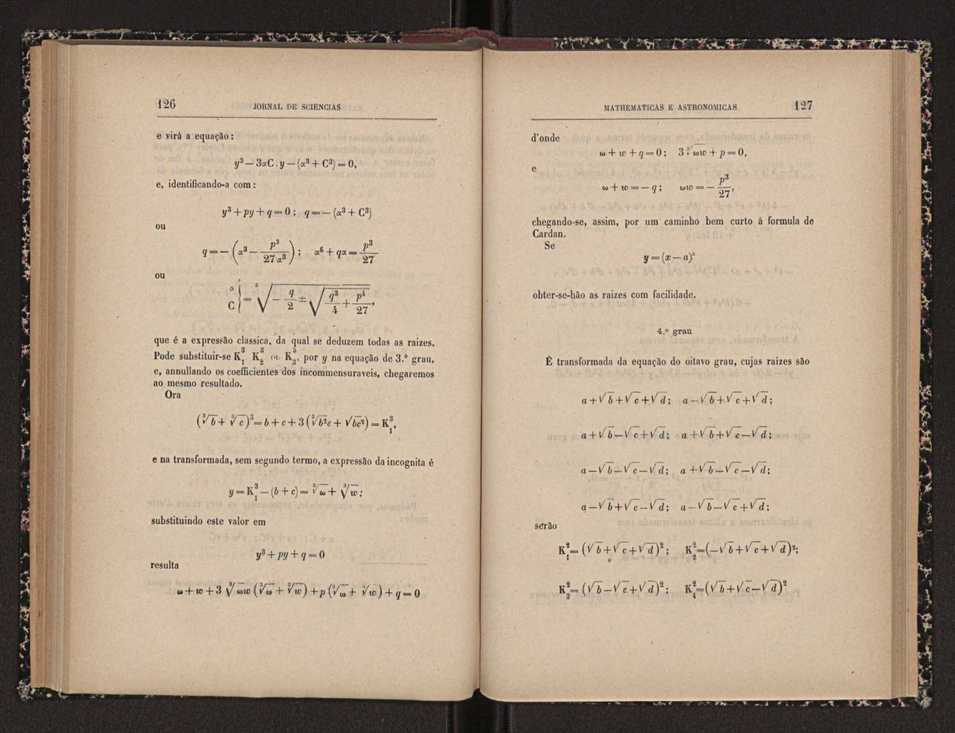 126
JORNAL DE SCIENCIAS
e virá a equação:
y³ — 3αC . y — (α³ + C³) = 0,
e, identificando-a com:
y³ + py + q = 0 ; q = — (α³ + C³)
ou
q = — (α³ — p³/27α³) ; α⁶ + qα = p³/27
ou
α } C } = ³√(— q/2 ± √(q²/4 + p³/27)),
que é a expressão classica, da qual se deduzem todas as raizes.
Pode substituir-se K₁³ K₂³ ou K₃³, por y na equação de 3.º grau,
e, annullando os coefficientes dos incommensuraveis, chegaremos
ao mesmo resultado.
Ora
(³√b + ³√c)³ = b + c + 3 (³√b²c + √bc²) = K₁³,
e na transformada, sem segundo termo, a expressão da incognita é
y = K₁³ — (b + c) = ³√ω + ³√w ;
substituindo este valor em
y³ + py + q = 0
resulta
ω + w + 3 ³√ωw (³√ω + ³√w) + p (³√ω + ³√w) + q = 0
MATHEMATICAS E ASTRONOMICAS
127
d'onde
ω + w + q = 0 ; 3 ³√ωw + p = 0,
e
ω + w = — q ; ωw = — p³/27,
chegando-se, assim, por um caminho bem curto á formula de
Cardan.
Se
y = (x — a)³
obter-se-hão as raizes com facilidade.
4.º grau
É transformada da equação do oitavo grau, cujas raizes são
a + √b + √c + √d ; a — √b + √c + √d ;
a + √b — √c + √d ; a + √b + √c — √d ;
a — √b — √c — √d ; a + √b — √c — √d ;
a — √b + √c — √d ; a — √b — √c + √d ;
serão
K₁² = (√b + √c + √d)² ; K₂² = (— √b + √c + √d)² ;
K₃² = (√b — √c + √d)² ; K₄² = (√b + √c — √d)²